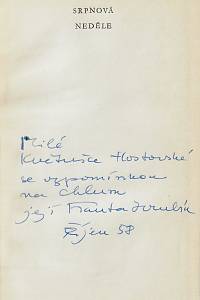 SRPNOVÁ
NEDĚLE
Milé
Květušce Hostovské
se vzpomínkou
na Chlum
její Franta Hrubín
Říjen 58